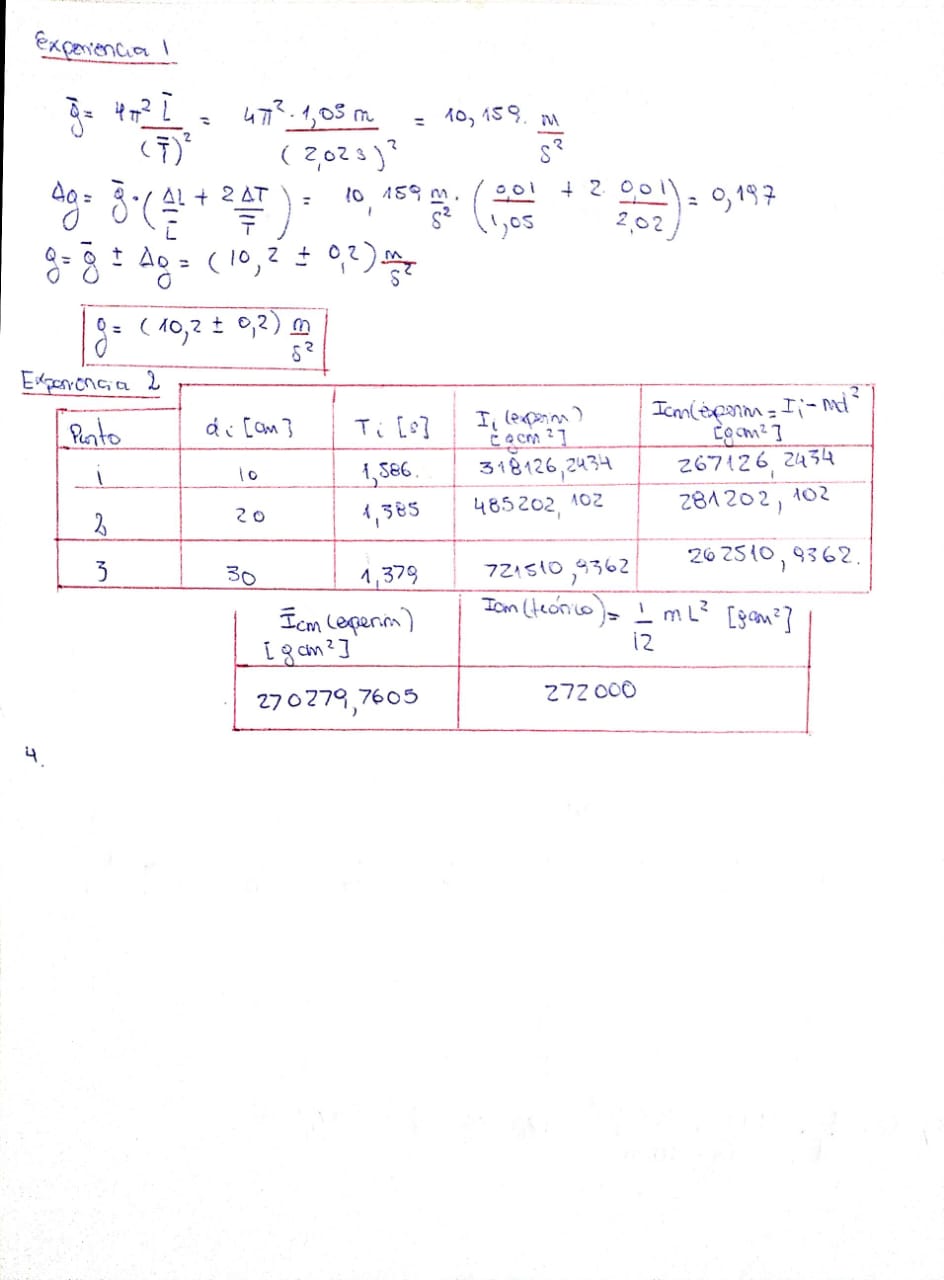 Experiencia 1
ḡ = 4π² L̄ / (T̄)² = 4π² · 1,05 m / (2,02 s)² = 10,159 · m/s²
Δg = ḡ · (ΔL/L̄ + 2 ΔT/T̄) = 10,159 m/s² · (0,01/1,05 + 2 · 0,01/2,02) = 0,197
g = ḡ ± Δg = (10,2 ± 0,2) m/s²
g = (10,2 ± 0,2) m/s²
Experiencia 2
Punto di [cm] Ti [s] Ii (experim) [gcm²] Icm(experim = Ii - md² [gcm²]
1 10 1,586. 318126,2434 267126,2434
2 20 1,385 485202,102 281202,102
3 30 1,379 721510,9362 262510,9362.
Īcm (experim) [gcm²] Icm (teórico) = 1/12 mL² [gcm²]
270279,7605 272000
4.